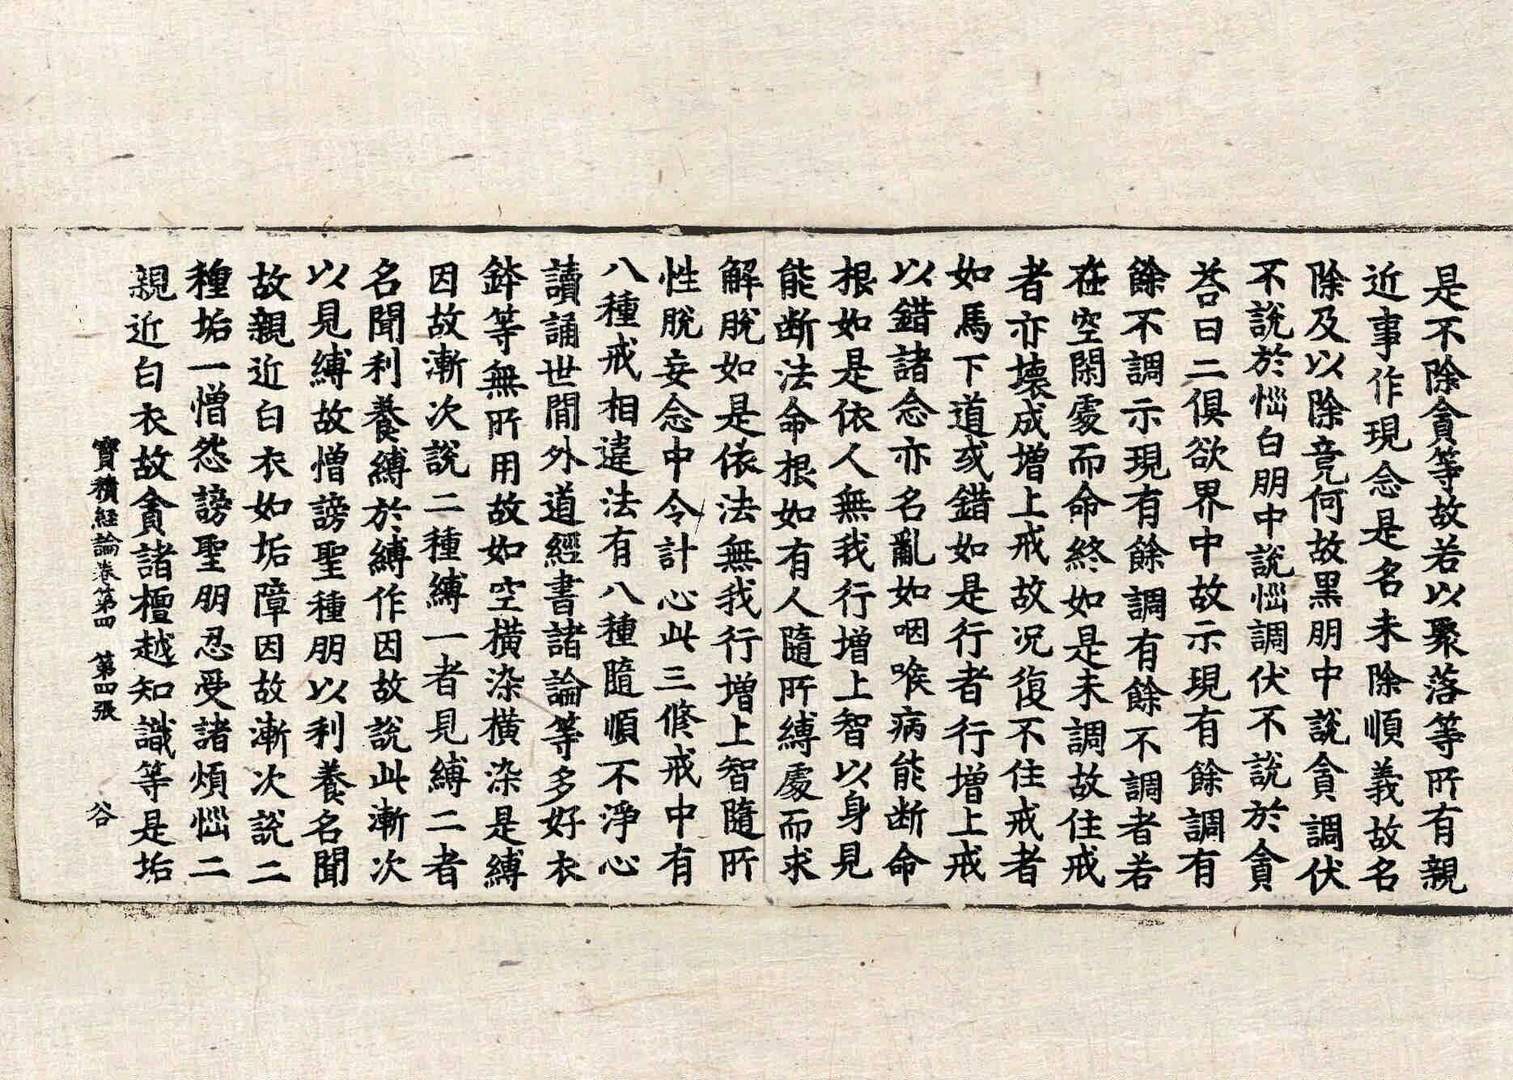 是不除貪等故若以聚落等所有親
近事作現念是名未除順義故名
除及以除竟何故黑朋中說貪調伏
不說於惱白朋中說惱調伏不說於貪
荅曰二俱欲界中故示現有餘調有
餘不調示現有餘調有餘不調者若
在空閑處而命終如是未調故住戒
者亦壞成增上戒故況復不住戒者
如馬下道或錯如是行者行增上戒
以錯諸念亦名亂如咽喉病能断命
根如是依人無我行增上智以身見
能断法命根如有人隨所縛處而求
解脫如是依法無我行增上智隨所
性脫妄念中令計心此三修戒中有
八種戒相違法有八種隨順不淨心
讀誦世間外道經書諸論等多好衣
鉢等無所用故如空橫染橫染是縛
因故漸次說二種縛一者見縛二者
名聞利養縛於縛作因故說此漸次
以見縛故憎謗聖種朋以利養名聞
故親近白衣如垢障因故漸次說二
種垢一憎怨謗聖朋忍受諸煩惱二
親近白衣故貪諸檀越知識等是垢
寶積経論卷第四　第四張　谷